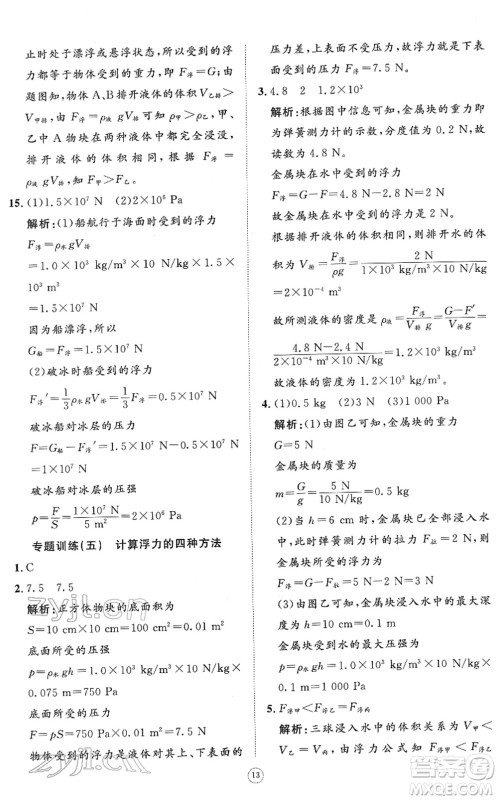 止时处于漂浮或悬浮状态，所以受到的浮
力都等于物体受到的重力，即浮力相等；由
题图知，物体 A、B 排开液体的体积 V乙排>
V甲排，由 F浮=ρ液gV排 可知，ρ甲>ρ乙，甲、
乙中 A 物块在两种液体中都完全浸没，
排开液体的体积相等，所以受到的浮力
F浮=ρ液gV排，知 F甲>F乙。
15. (1)1.5×10⁷ N (2)2×10⁶ Pa
解析：(1)船航行于海面时受到的浮力
F浮=ρ水gV排
=1.0×10³ kg/m³×10 N/kg×1.5×
10³ m³
=1.5×10⁷ N
因为船漂浮，所以
G船=F浮=1.5×10⁷ N
(2)破冰时船受到的浮力
F浮′=1/3ρ水gV排=0.5×10⁷ N
破冰船对冰层的压力
F=G船-F浮′=1.5×10⁷ N-0.5×10⁷ N
=1×10⁷ N
破冰船对冰层的压强
p=F/S=1×10⁷ N/5 m²=2×10⁶ Pa
专题训练(五) 计算浮力的四种方法
1. C
2. 7.5 7.5
解析：正方体物块的底面积为
S=10 cm×10 cm=100 cm²=0.01 m²
底面所受的压强为
p=ρ水gh=1.0×10³ kg/m³×10 N/kg×
0.075 m=750 Pa
底面所受的压力为
F=pS=750 Pa×0.01 m²=7.5 N
物体受到的浮力是液体对其上、下表面的
压力差，上表面不受压力，所以物体受到
的浮力 F浮=F=7.5 N。
3. 4.8 2 1.2×10³
解析：根据图中信息可知，金属块的重力
即为弹簧测力计的示数，分度值为 0.2 N，故
读数为 4.8 N。
金属块在水中受到的浮力为
F浮=G-F=4.8 N-2.8 N=2 N
故金属块在水中受到的浮力为 2 N。
根据排开液体的体积相等，则排开水的体
积为 V排=F浮/ρg=2 N/1×10³ kg/m³×10 N/kg
=2×10⁻⁴ m³
故所测液体的密度是 ρ=F浮/V排g=G-F′/V排g=
4.8 N-2.4 N/2×10⁻⁴ m³×10 N/kg=1.2×10³ kg/m³
故液体的密度为 1.2×10³ kg/m³。
4. (1)0.5 kg (2)3 (3)1 000
解析：(1)由图乙可知，金属块的重力
G=5 N
金属块的质量为
m=G/g=5 N/10 N/kg=0.5 kg
(2)当 h=6 cm 时，金属块已经浸没入水
中，弹簧测力计的拉力 F拉，由图乙可知，
F拉=3 N
(3)由图乙可知，金属块浸入水中的最大深
度为 h=10 cm=0.1 m
故金属块底部受到水的最大压强为
p=ρ水gh=1×10³ kg/m³×10 N/kg×
0.1 m=1 000 Pa
5. F浮甲<F浮乙=F浮丙
解析：三球浸入水中的体积关系为 V甲<
V乙=V丙，由浮力公式知 F浮甲<
13
zyjl.cn
作业精灵